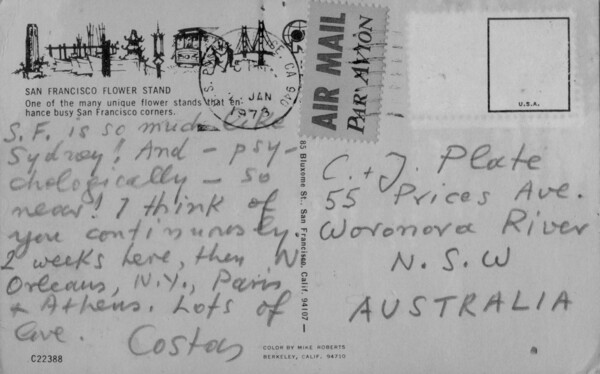 SAN FRANCISCO FLOWER STAND
One of the many unique flower stands that en-
hance busy San Francisco corners.
S.F. is so much like
Sydney! And – psy-
chologically – so
near! I think of
you continuously.
2 weeks here, then N
Orleans, N.Y., Paris
+ Athens. Lots of
love. Costas
C22388
JAN
1973
CA 940
AIR MAIL
PAR AVION
U.S.A.
85 Bluxome St., San Francisco, Calif. 94107
C. + J. Plate
55 Prices Ave.
Woronora River
N.S.W
AUSTRALIA
COLOR BY MIKE ROBERTS
BERKELEY, CALIF. 94710